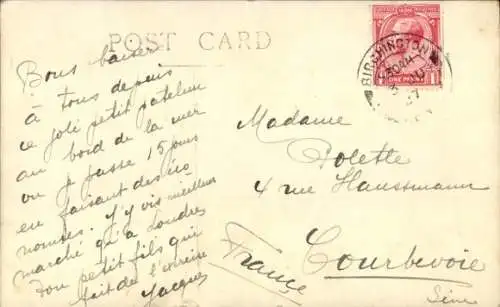 POST CARD
Bons baisers
à tous depuis
ce joli petit patelin
au bord de la mer
où je passe 15 jours
en faisant des éco
nomies. J'y vis meilleur
marché qu'à Londres
Ton petit fils qui
fait de l'
Jacques
BIRCHINGTON
ONE PENNY
Madame
Colette
4 rue Haussmann
Courbevoie
Seine
France